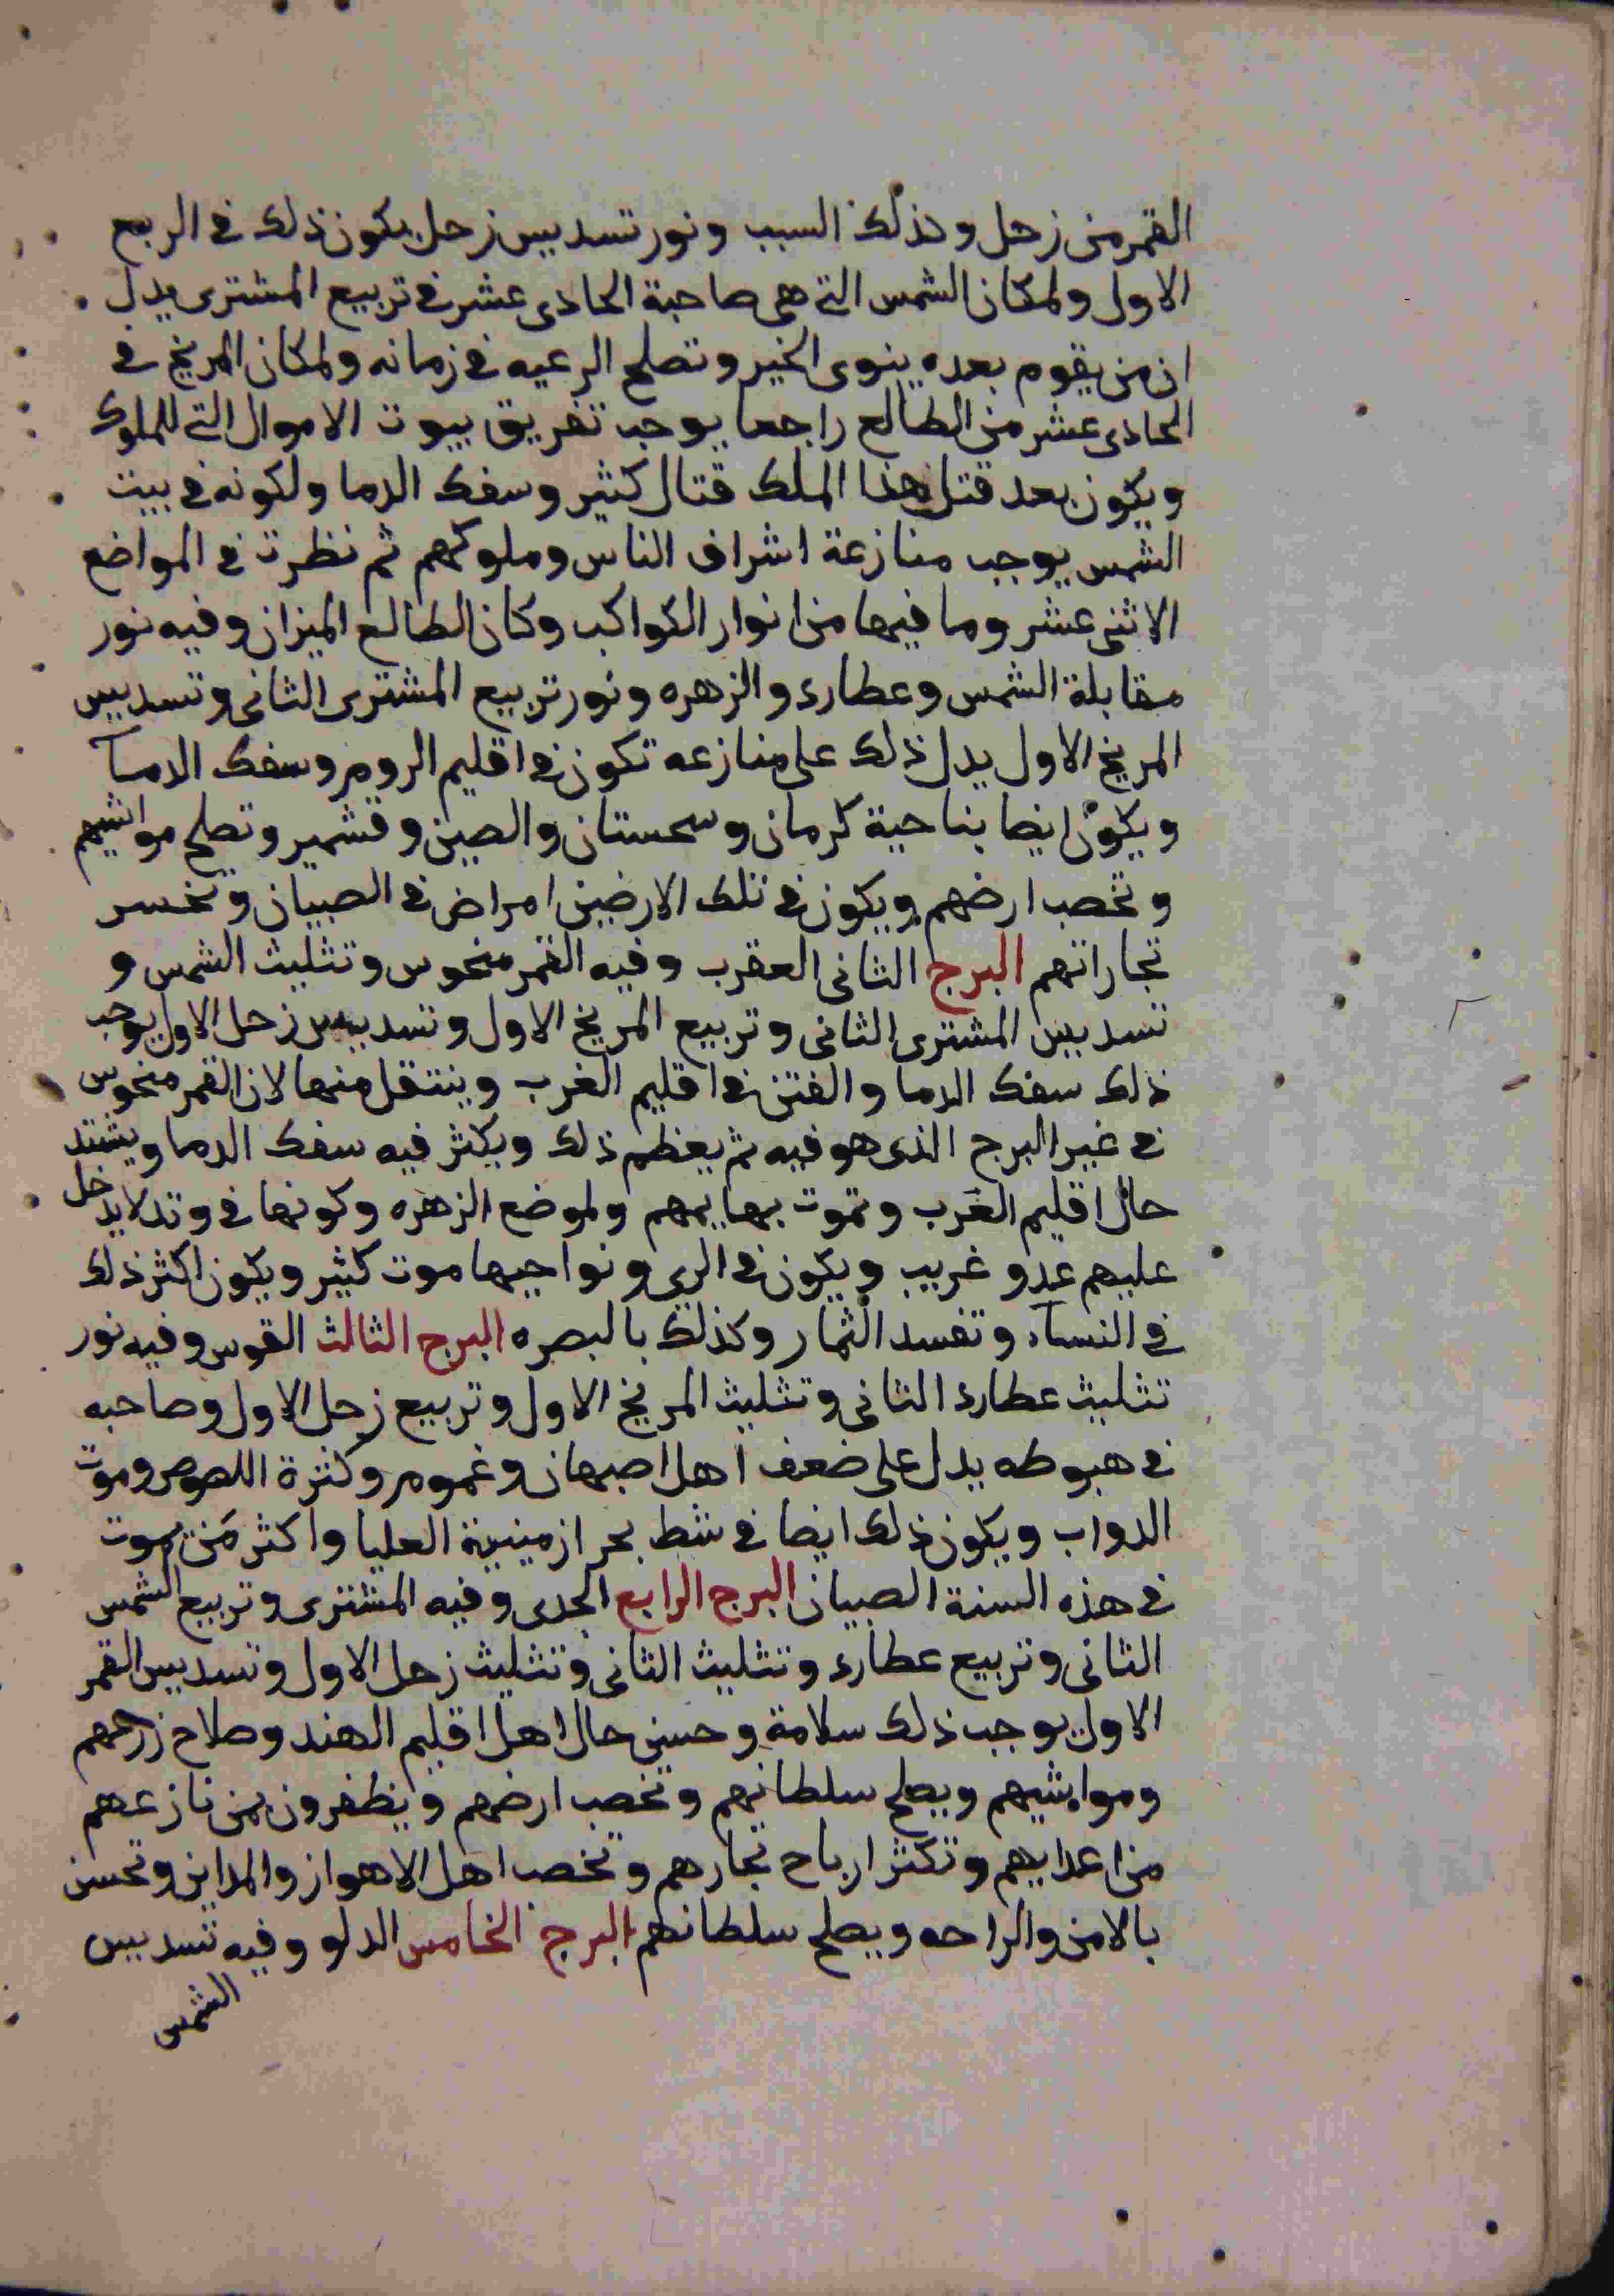 القمر من زحل وكذلك السبب ونور تسديس زحل يكون ذلك في الربع
الاول ولمكان الشمس التي هي صاحبة الحادى عشر في تربيع المشترى يدل
ان من يقوم بعده ينوى الخير وتصلح الرعيه في زمانه ولمكان المريخ في
الحادى عشر من الطالع راجعا يوجب تفريق بيوت الاموال التي للملوك
ويكون بعد قتل هذا الملك قتال كثير وسفك الدما ولكونه في بيت
الشمس يوجب منازعة اشراف الناس وملوكهم ثم نظرت في المواضع
الاثنى عشر وما فيها من انوار الكواكب وكان الطالع الميزان وفيه نور
مقابلة الشمس وعطارد والزهره ونور تربيع المشترى الثانى وتسديس
المريخ الاول يدل ذلك على منازعه تكون في اقليم الروم وسفك الدمآ
ويكون ايضا بناحية كرمان وسحستان والصين وقشمير وتصلح مواشيهم
وتخصب ارضهم ويكون في تلك الارضين امراض في الصبيان وتخسر
تجاراتهم البرج الثانى العقرب وفيه القمر منحوس وتثليث الشمس و
تسديس المشترى الثانى وتربيع المريخ الاول وتسديس زحل الاول يوجب
ذلك سفك الدما والفتن في اقليم الغرب وينتقل منها لان القمر منحوس
في غير البرج الذى هو فيه ثم يعظم ذلك ويكثر فيه سفك الدما ويشتد
حال اقليم الغرب وتموت بهايمهم ولموضع الزهره وكونها في وتد لا يدخل
عليهم عدو غريب ويكون في الرى ونواحيها موت كثير ويكون اكثر ذلك
في النسآء وتفسد الثمار وكذلك بالبصره البرج الثالث القوس وفيه نور
تثليث عطارد الثانى وتثليث المريخ الاول وتربيع زحل الاول وصاحبه
في هبوطه يدل على ضعف اهل اصبهان وغموم وكثرة اللصوص وموت
الدواب ويكون ذلك ايضا في شط بحر ازمينية العليا واكثر من يموت
في هذه السنة الصبيان البرج الرابع الجدى وفيه المشترى وتربيع الشمس
الثانى وتربيع عطارد وتثليث الثانى وتثليث زحل الاول وتسديس القمر
الاول يوجب ذلك سلامة وحسن حال اهل اقليم الهند وصلاح زرعهم
ومواشيهم ويصلح سلطانهم وتخصب ارضهم ويظفرون بمن نازعهم
من اعدايهم وتكثر ارباح تجارهم وتخصب اهل الاهواز والمداين وتحسن
بالامن والراحه ويصلح سلطانهم البرج الخامس الدلو وفيه تسديس
الشمس